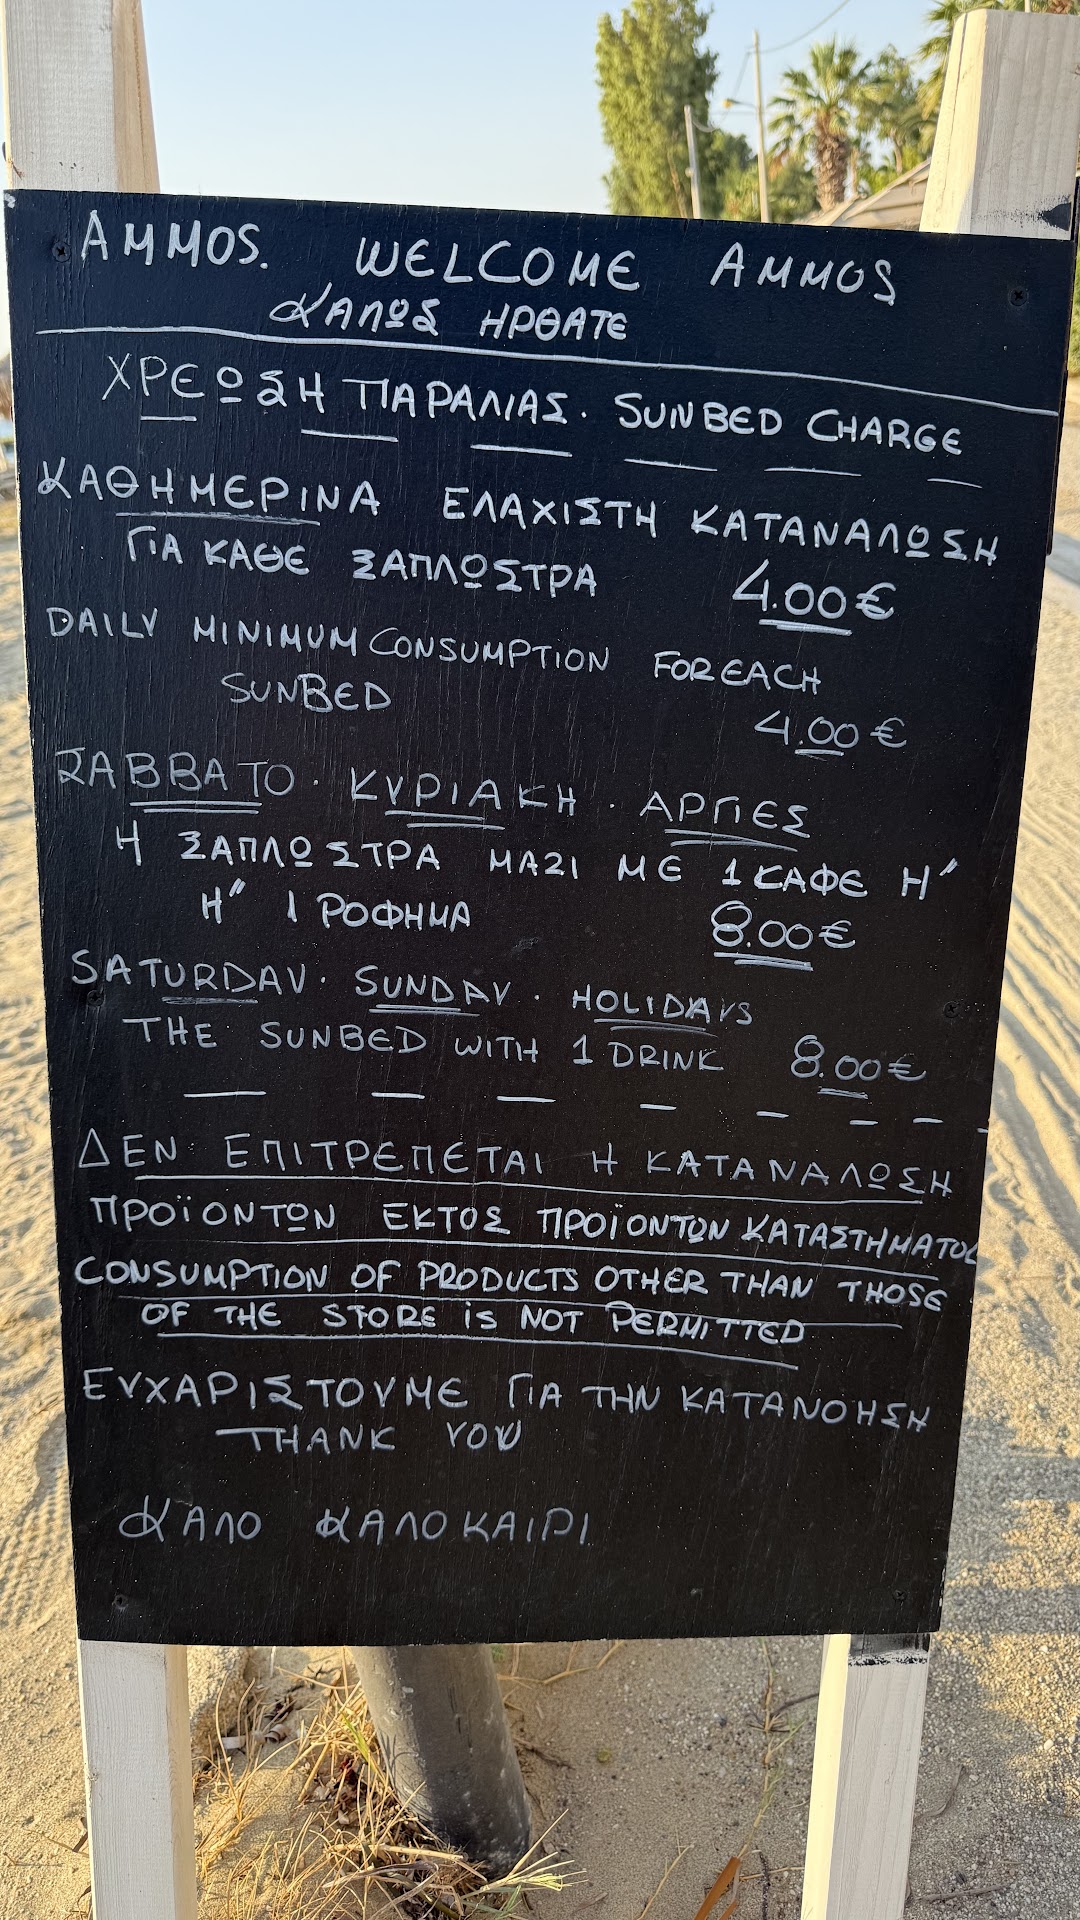 ΑΜΜΟS. WELCOME ΑΜΜΟS
ΚΑΛΩΣ ΗΡΘΑΤΕ
ΧΡΕΩΣΗ ΠΑΡΑΛΙΑΣ. SUNBED CHARGE
ΚΑΘΗΜΕΡΙΝΑ ΕΛΑΧΙΣΤΗ ΚΑΤΑΝΑΛΩΣΗ
ΓΙΑ ΚΑΘΕ ΞΑΠΛΩΣΤΡΑ 4.00€
DAILY MINIMUM CONSUMPTION FOR EACH
SUNBED 4.00€
ΣΑΒΒΑΤΟ. ΚΥΡΙΑΚΗ. ΑΡΓΙΕΣ
Η ΞΑΠΛΩΣΤΡΑ ΜΑΖΙ ΜΕ 1 ΚΑΦΕ Η"
Η" 1 ΡΟΦΗΜΑ 8.00€
SATURDAY. SUNDAY. HOLIDAYS
THE SUNBED WITH 1 DRINK 8.00€
ΔΕΝ ΕΠΙΤΡΕΠΕΤΑΙ Η ΚΑΤΑΝΑΛΩΣΗ
ΠΡΟΪΟΝΤΩΝ ΕΚΤΟΣ ΠΡΟΪΟΝΤΩΝ ΚΑΤΑΣΤΗΜΑΤΟΣ
CONSUMPTION OF PRODUCTS OTHER THAN THOSE
OF THE STORE iS NOT PERMITTED
ΕΥΧΑΡΙΣΤΟΥΜΕ ΓΙΑ ΤΗΝ ΚΑΤΑΝΟΗΣΗ
THANK YOU
ΚΑΛΟ ΚΑΛΟΚΑΙΡΙ